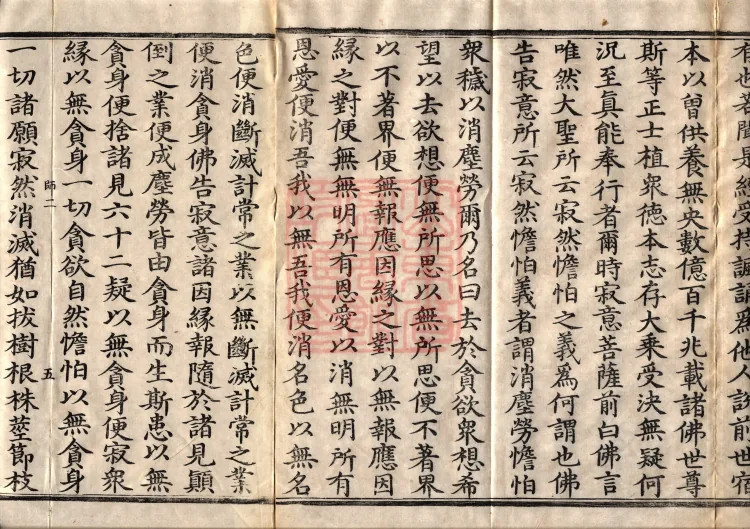 有也若聞是經受持諷誦爲他人說前世宿
本以曽供養無央數億百千兆載諸佛世尊
斯等正士植衆德本志存大乘受決無疑何
況至真能奉行者爾時寂意菩薩前白佛言
唯然大聖所云寂然憺怕之義爲何謂也佛
告寂意所云寂然憺怕義者謂消塵勞憺怕
衆穢以消塵勞爾乃名曰去於貪欲衆想希
望以去欲想便無所思以無所思便不著界
以不著界便無報應因緣之對以無報應因
緣之對便無無明所有恩愛以消無明所有
恩愛便消吾我以無吾我便消名色以無名
色便消斷滅計常之業以無斷滅計常之業
便消貪身佛告寂意諸因緣報隨於諸見顚
倒之業便成塵勞皆由貪身而生斯患以無
貪身便捨諸見六十二疑以無貪身便寂衆
緣以無貪身一切貪欲自然憺怕以無貪身
師二 五
一切諸願寂然消滅猶如拔樹根株莖節枝